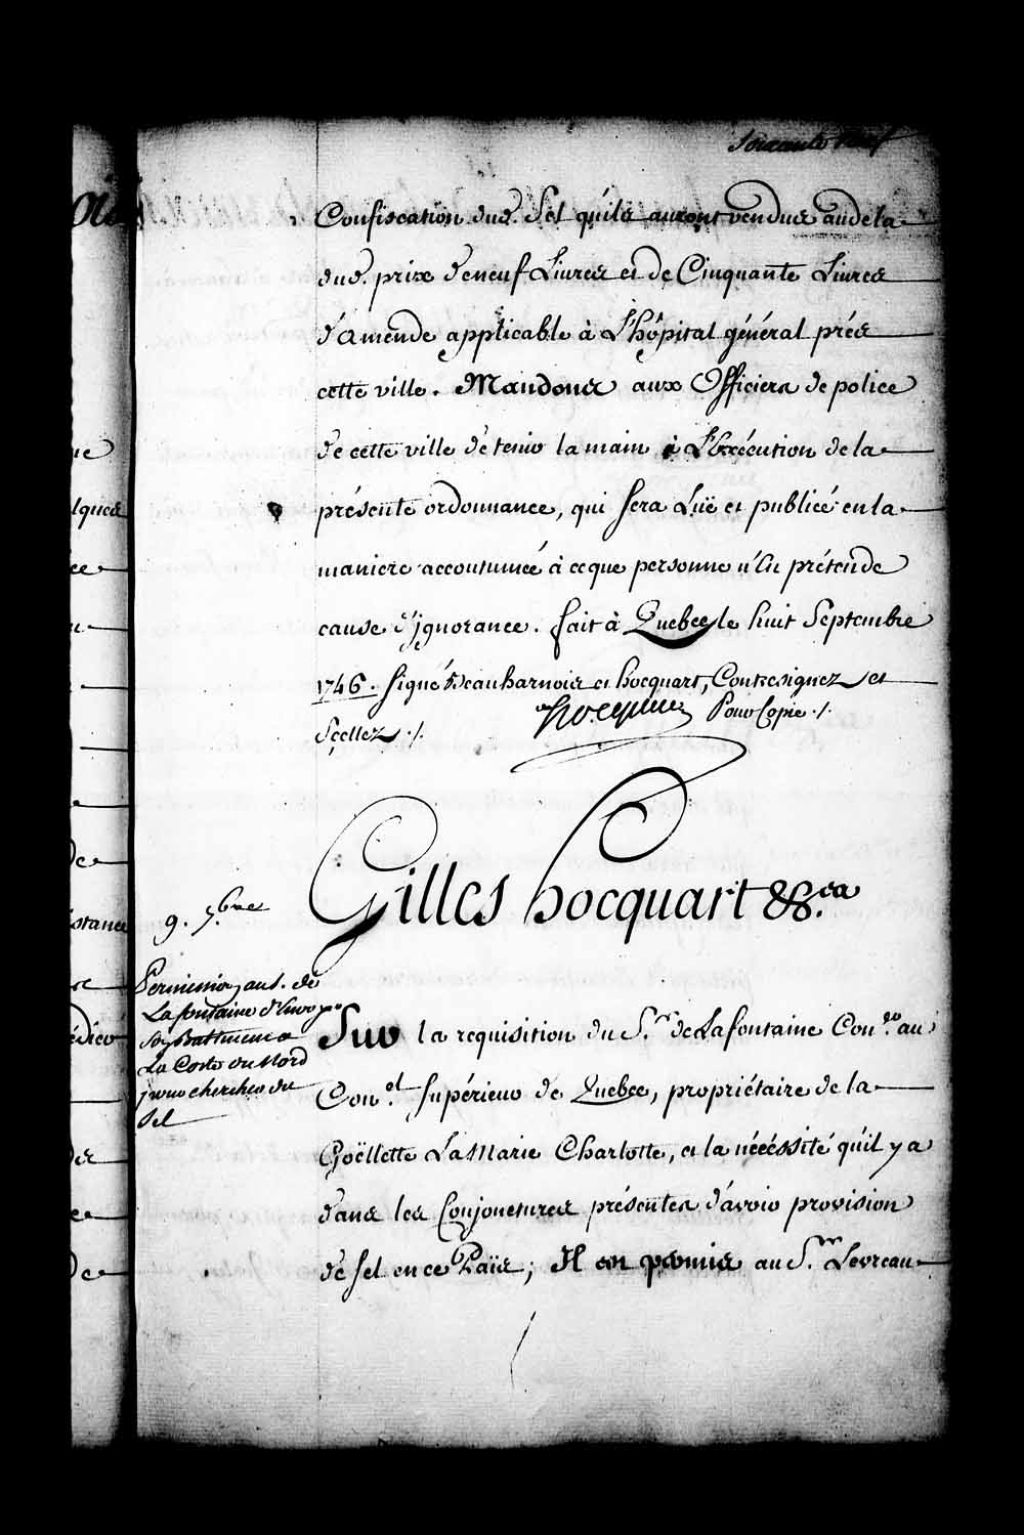 Soixante neuf
Confiscation dud. Sel qu'ils auront vendus au dela
dud. prix de neuf Livres et de Cinquante Livres
d'amende applicable à L'hôpital général prés
cette ville. Mandons aux Officiers de police
de cette ville de tenir la main à L'Exécution de la
présente ordonnance, qui sera Lüe et publiée en la
maniere accoutumée à ceque personne n'En prétende
cause d'jgnorance. fait à Quebec le huit Septembre
1746. Signé Beauharnois et hocquart, Contresignez et
Scellez ./.
hocquart Pour Copie ./.
Gilles hocquart &.ca
9. 7.bre
Permission au s. de
Lafontaine d'Envoyer
son Battiment a
La Coste du Nord
pour chercher du
Sel
Sur la requisition du S.r de Lafontaine Con.er au
Con.el Supérieur de Quebec, propriétaire de la
Goëllette La Marie Charlotte, et la nécéssité qu'il y a
dans les Conjonctures présentes d'avoir provision
de sel en ce Païs; Il est permis au S.r Levreau
ue
lques
ce
de
stance
édier
des
de